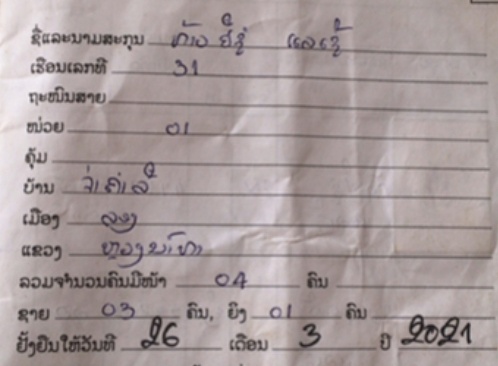 ຊື່ແລະນາມສະກຸນ ທ້າວ ຢີ່ຊູ່ ແລເຊີ້
ເຮືອນເລກທີ 31
ຖະໜົນສາຍ
ໜ່ວຍ 01
ຄຸ້ມ
ບ້ານ ຈ່າຄຳເລີ
ເມືອງ ລອງ
ແຂວງ ຫຼວງນ້ຳທາ
ລວມຈຳນວນຄົນມີໜ້າ 04 ຄົນ
ຊາຍ 03 ຄົນ, ຍິງ 01 ຄົນ
ຢັ້ງຢືນໃຫ້ວັນທີ 26 ເດືອນ 3 ປີ 2021